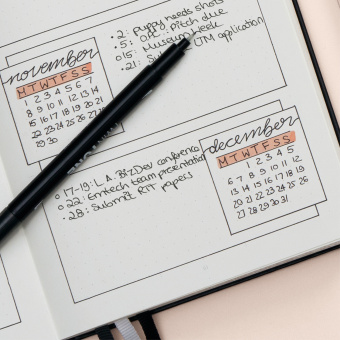 november
M T W T F S S
1 2 3 4 5 6 7
8 9 10 11 12 13 14
15 16 17 18 19 20 21
22 23 24 25 26 27 28
29 30
• 2: puppy needs shots
• 5: pitch due
○ 15: Museum Week
• 21: UTM application
december
M T W T F S S
1 2 3 4 5
6 7 8 9 10 11 12
13 14 15 16 17 18 19
20 21 22 23 24 25 26
27 28 29 30 31
○ 17-19: L.A. BizDev conference
○ 22: Emtech team presentation
• 28: Submit RIT papers